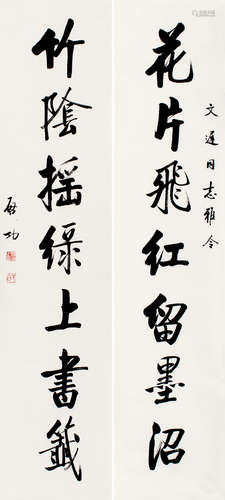 花片飛红留墨沼
文連同志雅令
竹陰摇绿上書籤
啟功